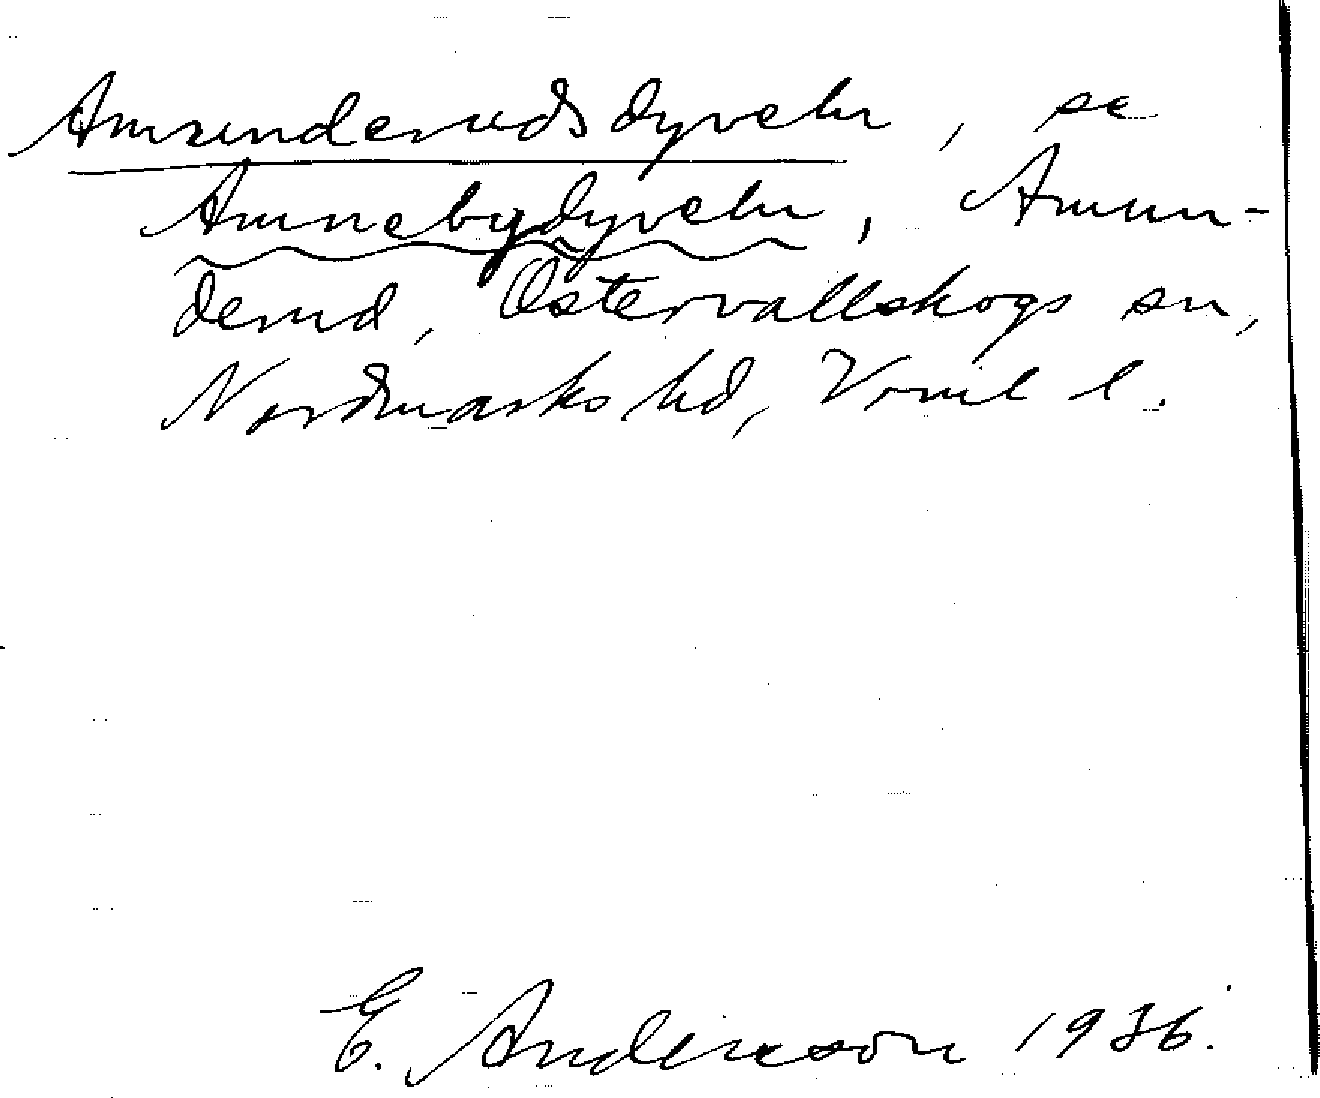 Amunderudsdyveln, se
Amnebydyveln, Amun-
derud, Östervallskogs sn,
Nordmarks hd, Vrml l.
E. Anderson 1936.